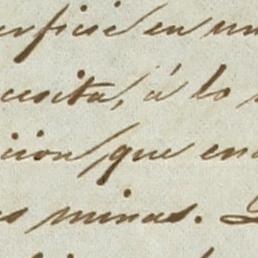 erficie en un
ecesita, á lo
icion, que en
s minas.